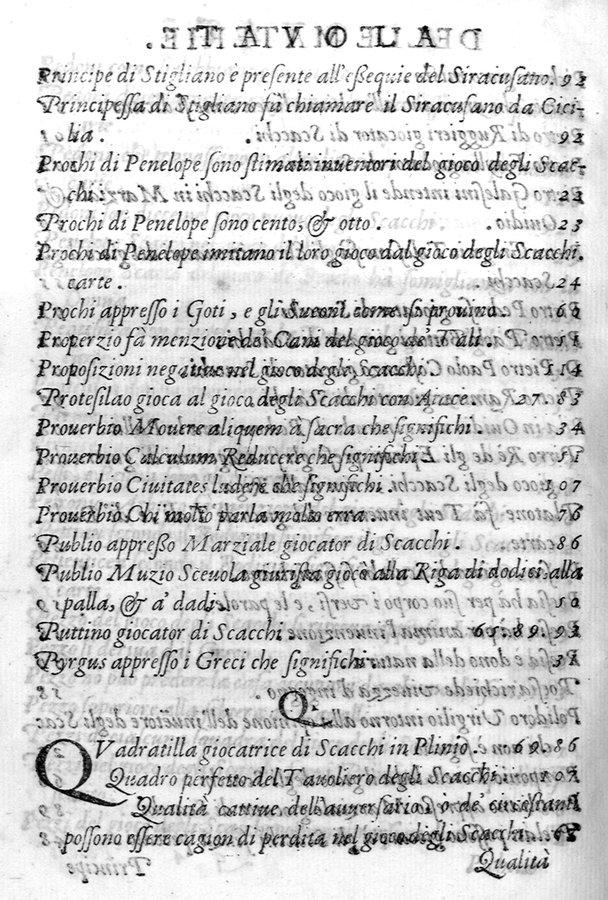 Principe di Stigliano è presente all'eßequie del Siracusano. 92
Principessa di Stigliano fà chiamare il Siracusano da Cici-
lia . 92
Prochi di Penelope sono stimati inventori del gioco degli Scac-
chi . 22
Prochi di Penelope sono cento, & otto . 23
Prochi di Penelope imitano il loro gioco dal gioco degli Scacchi.
carte . 24
Prochi appresso i Goti , e gli
Properzio fà menzione de' Cani del gioco de' Tali .
Proposizioni negatiue nel gioco degli Scacchi . 114
Protesilao gioca al gioco degli Scacchi con Aiace . 27. 83
Prouerbio Mouere aliquem à sacra che significhi . 34
Prouerbio Calculum Reducere che significhi
Prouerbio Ciuitates ludere che significhi . 107
Prouerbio Chi molto parla molto erra . 76
Publio appreßo Marziale giocator di Scacchi . 86
Publio Muzio Sceuola giurista giocò alla Riga di dodici, alla
palla, & a' dadi .
Puttino giocator di Scacchi 61. 89. 93
Pyrgus appresso i Greci che significhi .
Q.
QVadratilla giocatrice di Scacchi in Plinio . 69. 86
Quadro perfetto del Tauoliero degli Scacchi .
Qualità cattiue dell'auuersario, o de' circostanti
possono essere cagion di perdita nel gioco degli Scacchi .
Qualità